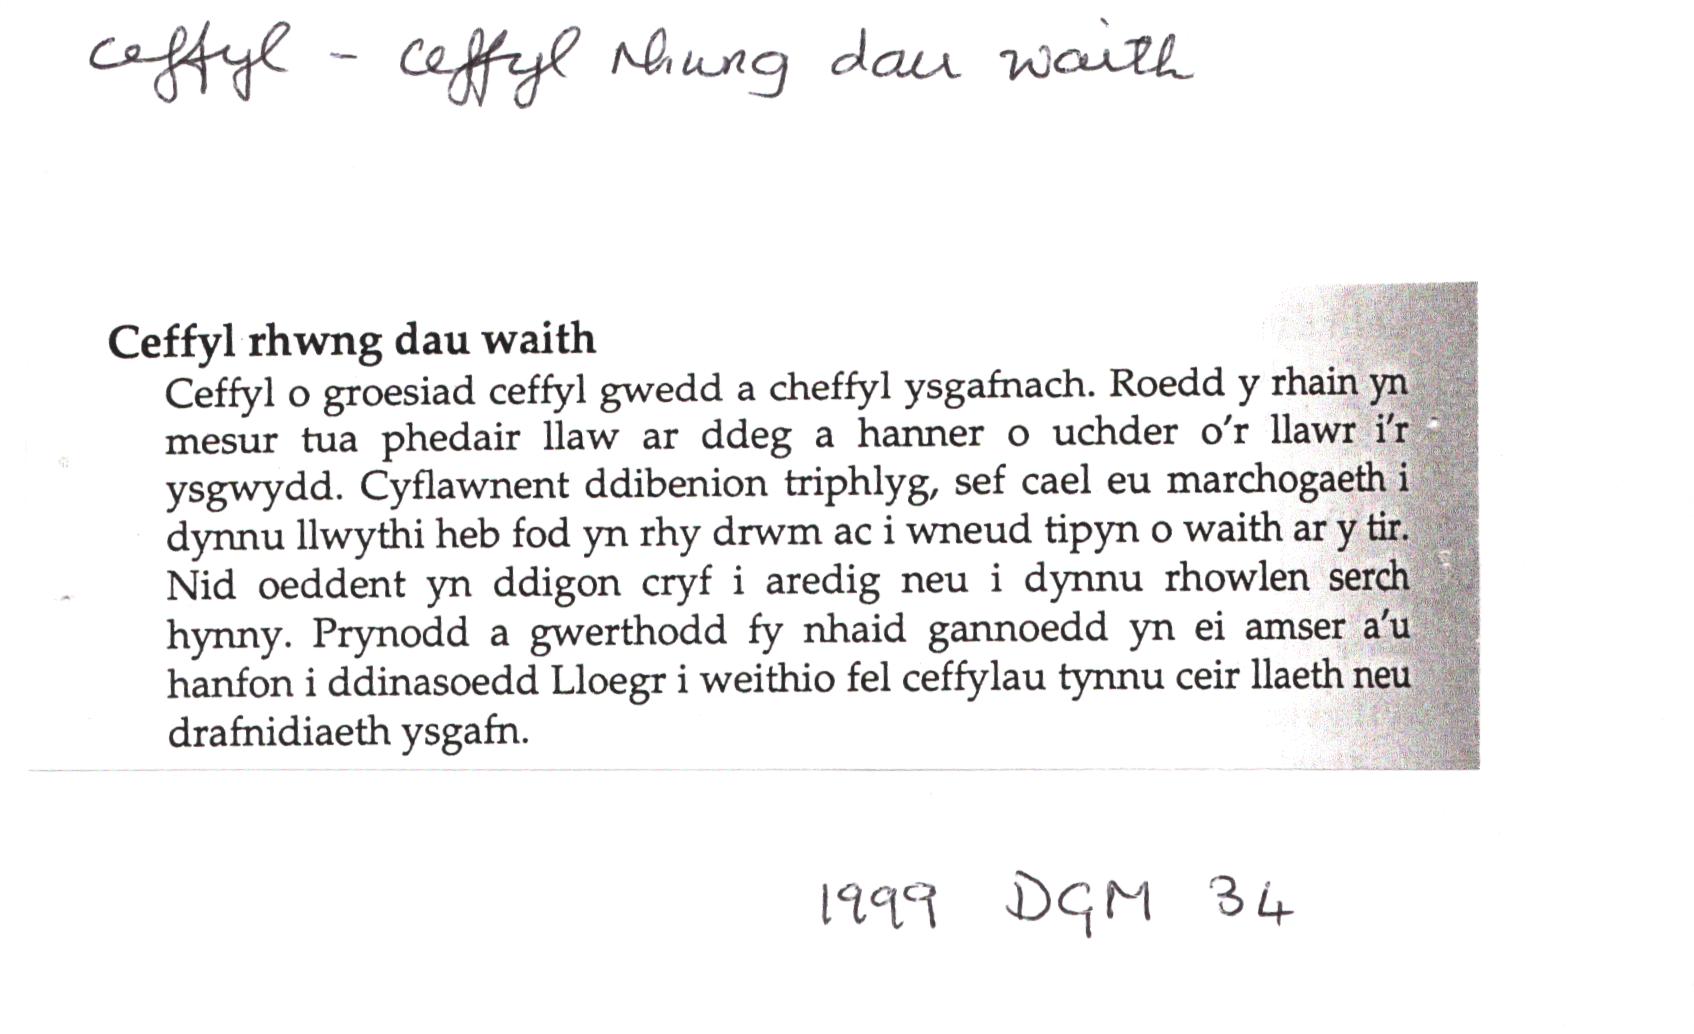 ceffyl - ceffyl rhwng dau waith
Ceffyl rhwng dau waith
Ceffyl o groesiad ceffyl gwedd a cheffyl ysgafnach. Roedd y rhain yn
mesur tua phedair llaw ar ddeg a hanner o uchder o'r llawr i'r
ysgwydd. Cyflawnent ddibenion triphlyg, sef cael eu marchogaeth i
dynnu llwythi heb fod yn rhy drwm ac i wneud tipyn o waith ar y tir.
Nid oeddent yn ddigon cryf i aredig neu i dynnu rhowlen serch
hynny. Prynodd a gwerthodd fy nhaid gannoedd yn ei amser a'u
hanfon i ddinasoedd Lloegr i weithio fel ceffylau tynnu ceir llaeth neu
drafnidiaeth ysgafn.
1999 DGM 34